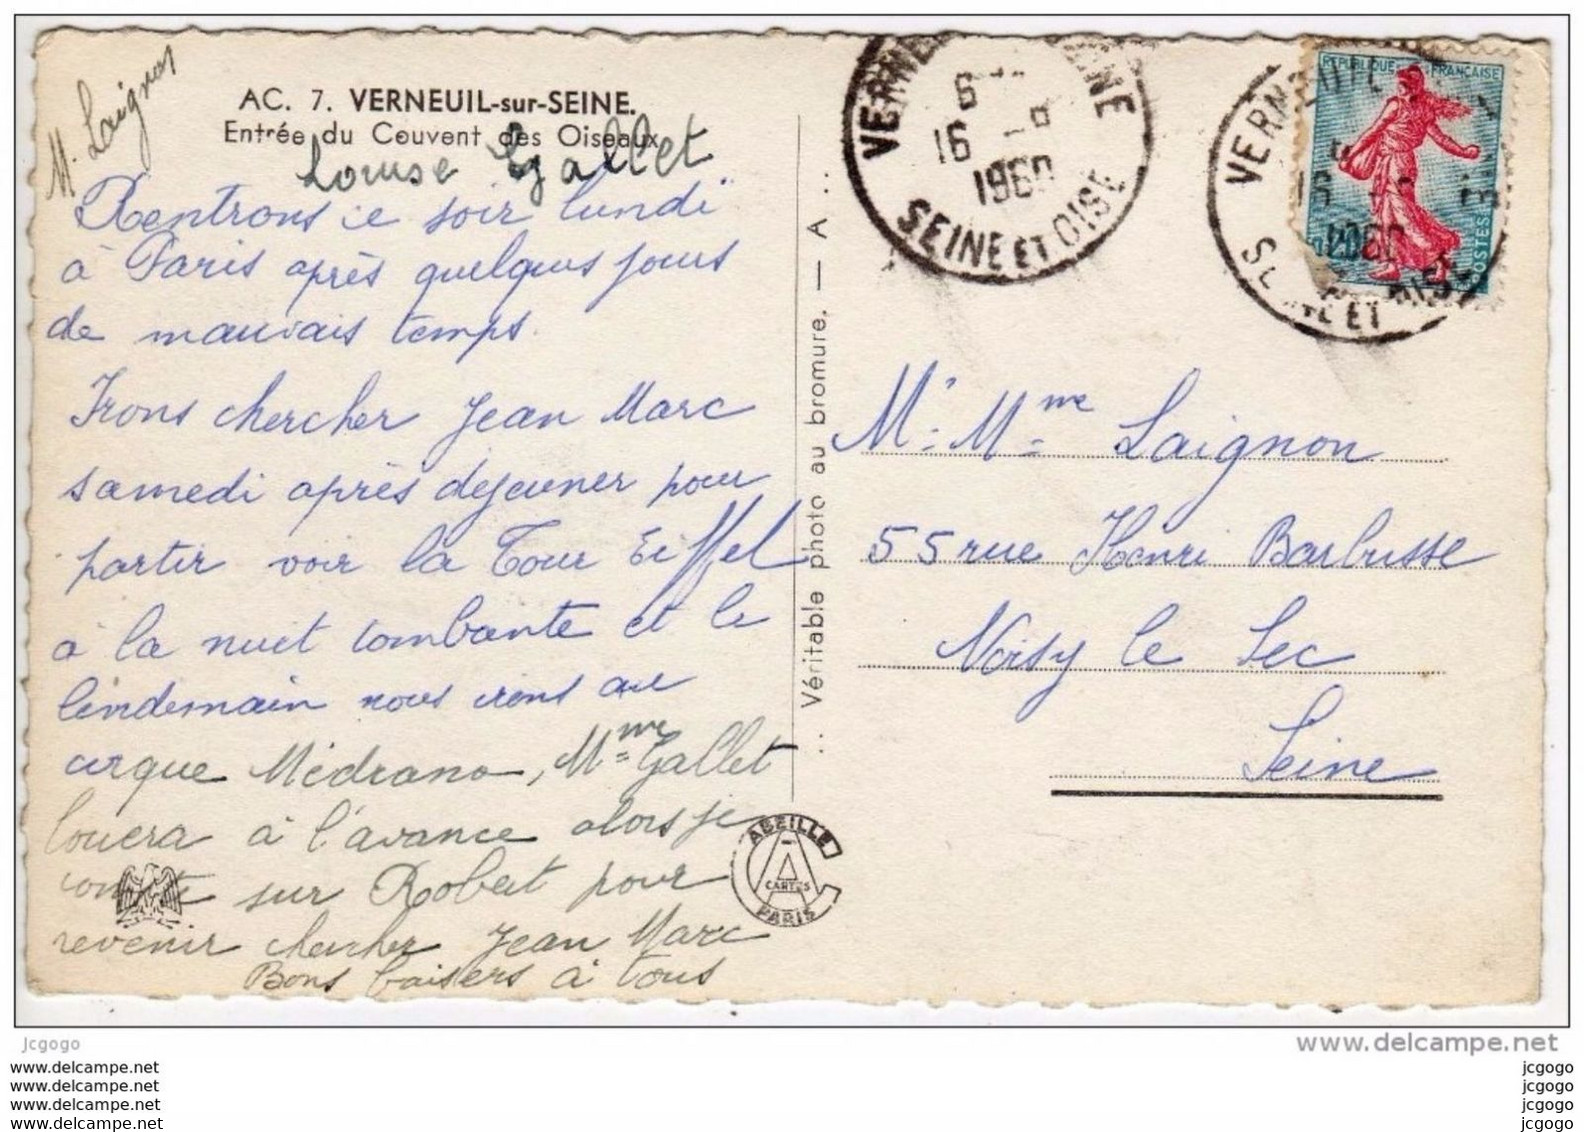 M. Laignon
AC. 7. VERNEUIL-sur-SEINE.
Entrée du Couvent des Oiseaux
Louise Gallet
Rentrons ce soir lundi
à Paris après quelques jours
de mauvais temps.
Irons chercher Jean Marc
samedi après dejeuner pour
partir voir la Tour Eiffel
à la nuit tombante et le
lendemain nous irons au
cirque Médrano, Mme Gallet
louera à l'avance alors je
compte sur Robert pour
revenir chercher Jean Marc
Bons baisers à tous
Véritable photo au bromure. — A...
ABEILLE
CARTES
PARIS
VERNEUIL SEINE
16 - 8
1960
SEINE ET OISE
REPUBLIQUE FRANÇAISE
POSTES
VERNEUIL
16
1960
SEINE ET OISE
Mr. Mme Laignon
55 rue Henri Barbusse
Noisy le Sec
Seine
jcgogo
www.delcampe.net
www.delcampe.net
www.delcampe.net
www.delcampe.net
www.delcampe.net
jcgogo
jcgogo
jcgogo
jcgogo